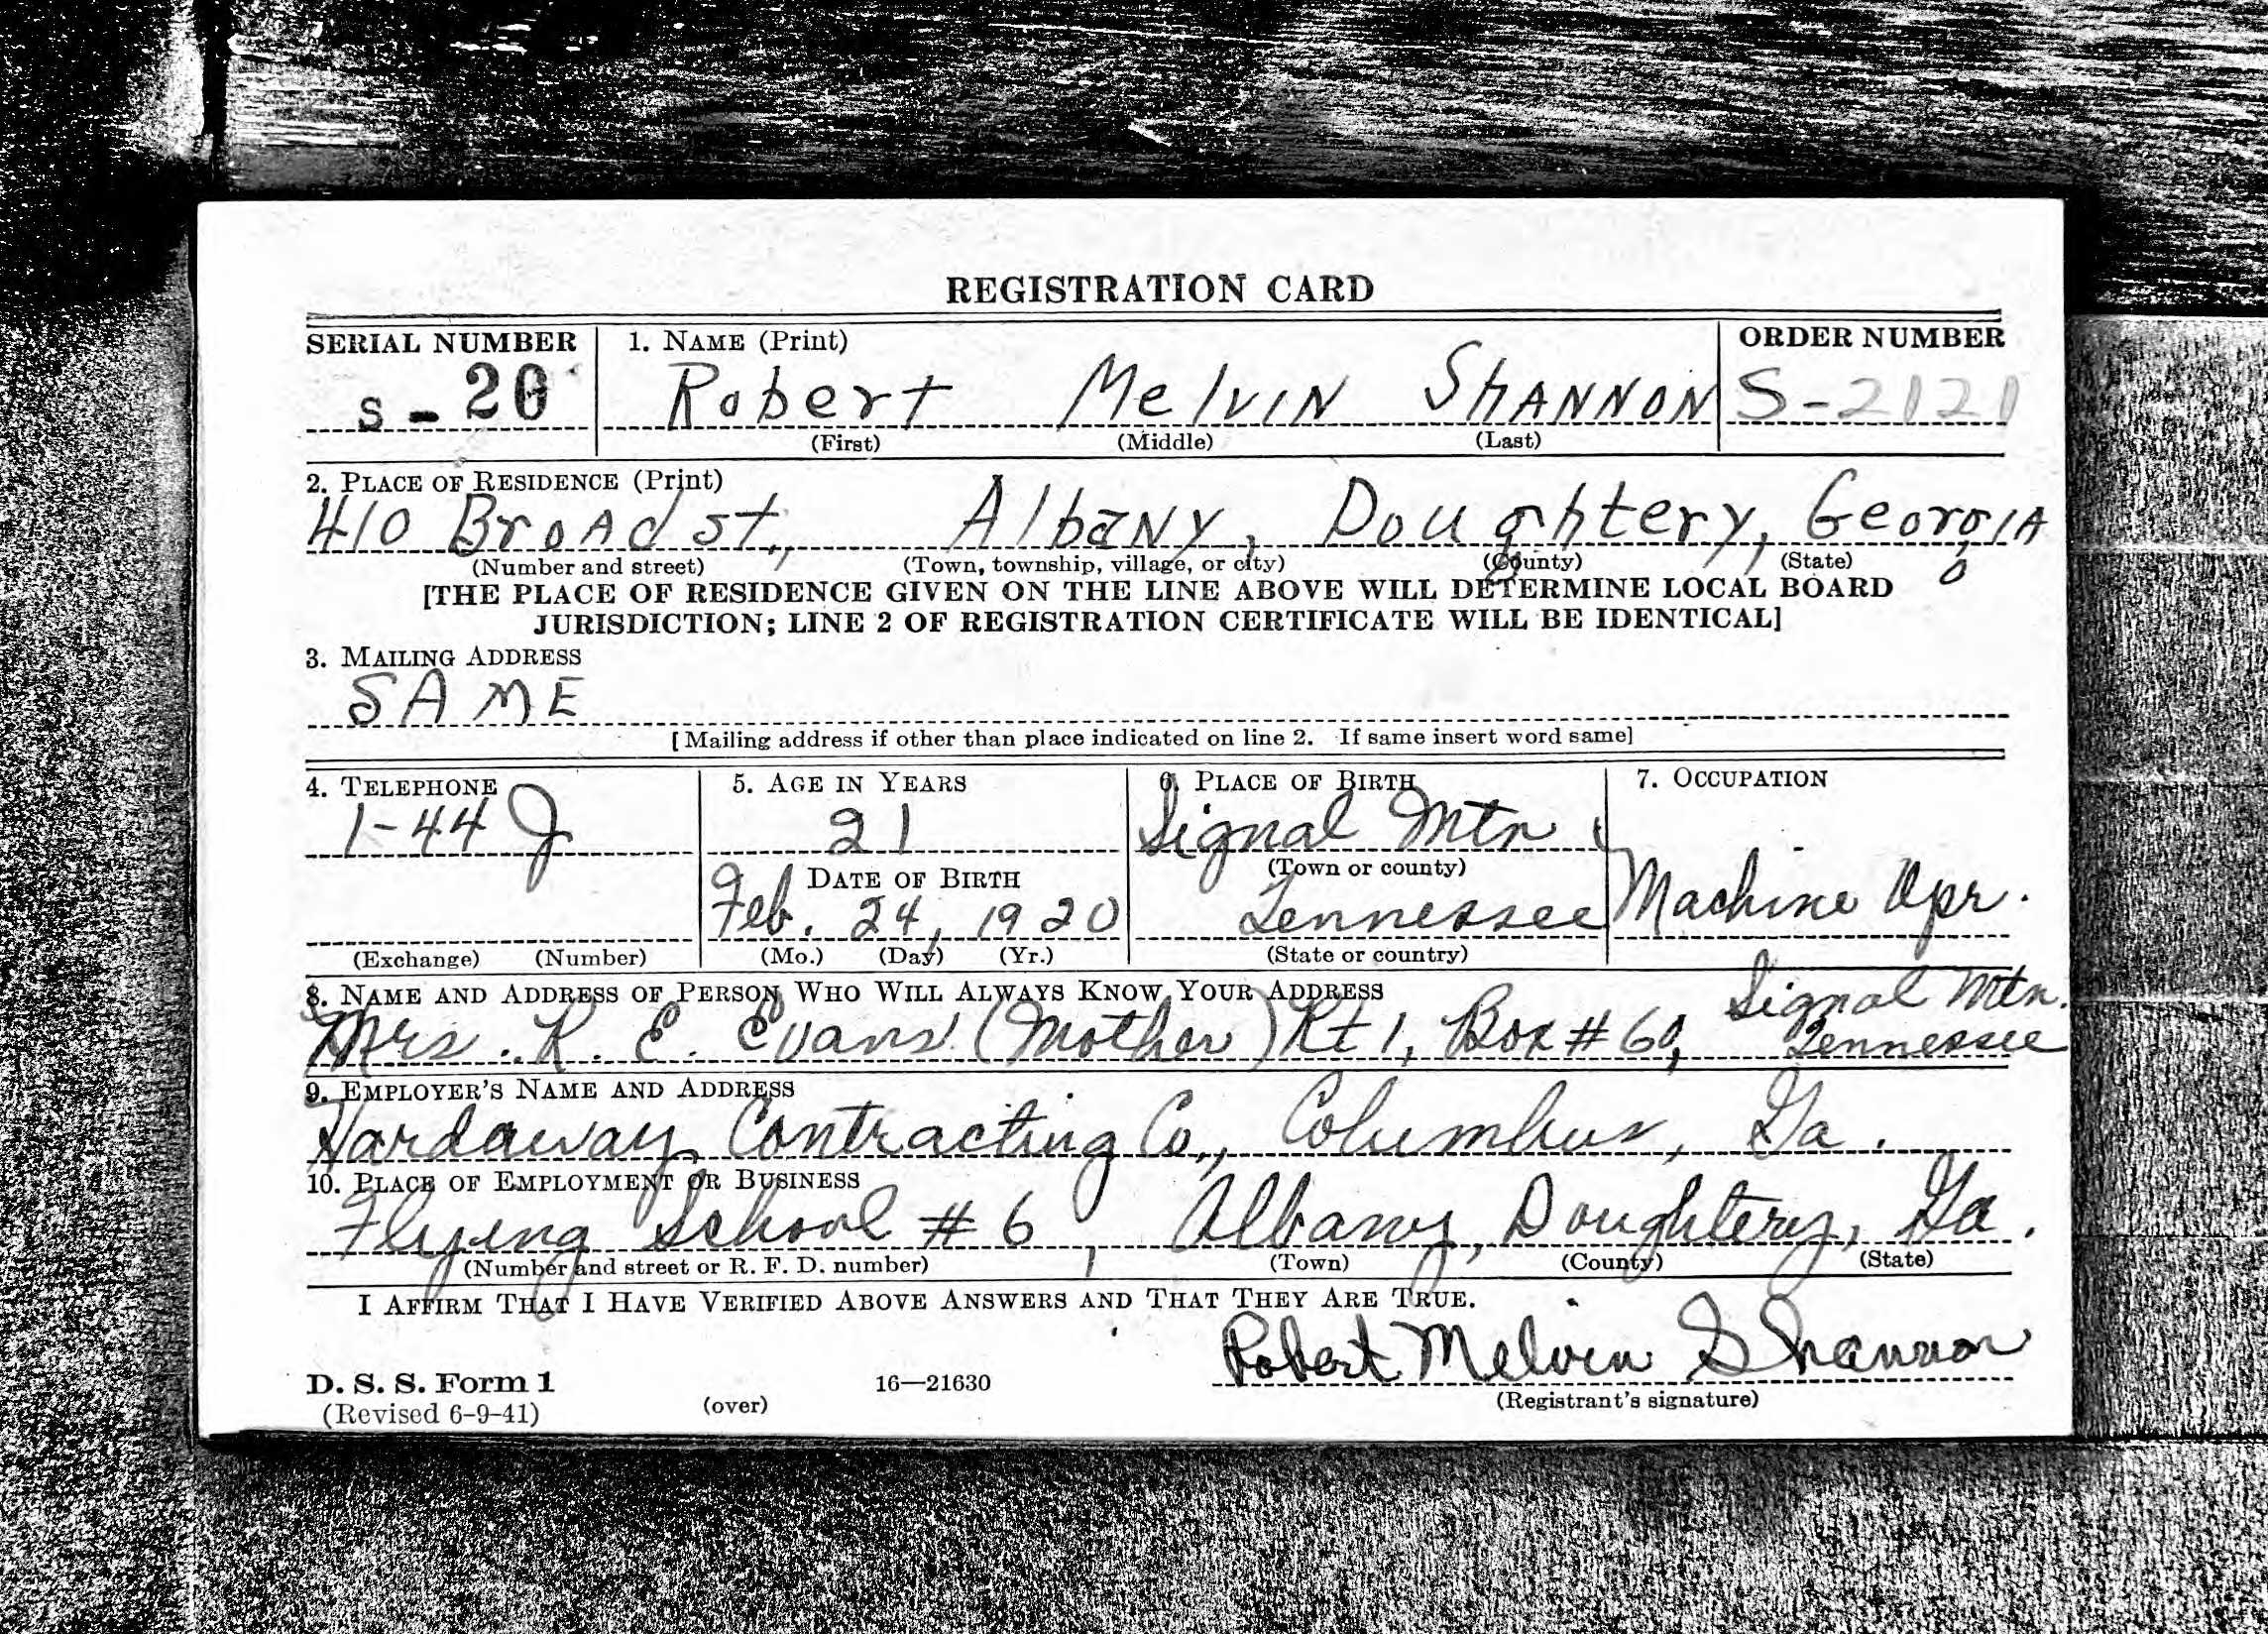 REGISTRATION CARD
SERIAL NUMBER 1. NAME (Print) ORDER NUMBER
S - 20 Robert MelVIN SHANNON S-2121
(First) (Middle) (Last)
2. PLACE OF RESIDENCE (Print)
410 Broad st., Albany, Doughtery, Georgia
(Number and street) (Town, township, village, or city) (County) (State)
[THE PLACE OF RESIDENCE GIVEN ON THE LINE ABOVE WILL DETERMINE LOCAL BOARD
JURISDICTION; LINE 2 OF REGISTRATION CERTIFICATE WILL BE IDENTICAL]
3. MAILING ADDRESS
SAME
[Mailing address if other than place indicated on line 2. If same insert word same]
4. TELEPHONE 5. AGE IN YEARS 6. PLACE OF BIRTH 7. OCCUPATION
1-44 J 21 Signal Mtn
(Town or county)
DATE OF BIRTH
Feb. 24, 1920 Tennessee Machine Opr.
(Exchange) (Number) (Mo.) (Day) (Yr.) (State or country)
8. NAME AND ADDRESS OF PERSON WHO WILL ALWAYS KNOW YOUR ADDRESS
Mrs. R. E. Evans (Mother) Rt 1, Box # 60, Signal Mtn. Tennessee
9. EMPLOYER'S NAME AND ADDRESS
Hardaway Contracting Co., Columbus, Ga.
10. PLACE OF EMPLOYMENT OR BUSINESS
Flying School # 6, Albany, Doughtery, Ga.
(Number and street or R. F. D. number) (Town) (County) (State)
I AFFIRM THAT I HAVE VERIFIED ABOVE ANSWERS AND THAT THEY ARE TRUE.
Robert Melvin Shannon
D. S. S. Form 1 16—21630
(Revised 6-9-41) (over) (Registrant's signature)